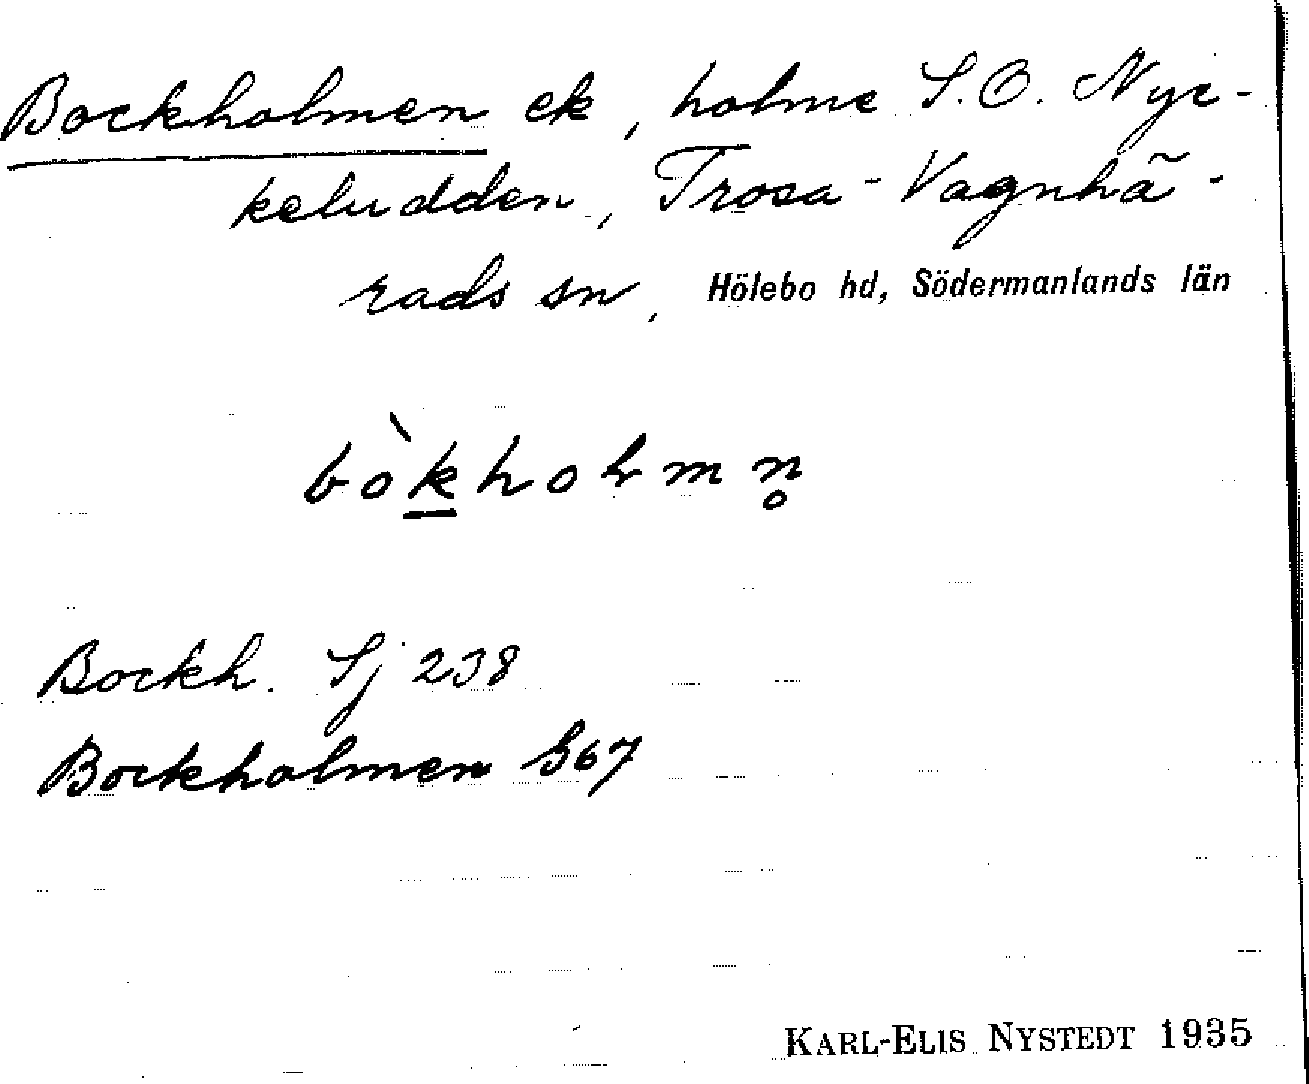 Bockholmen ek, holme S.O. Nyc-
keludden, Trosa-Vagnhä-
rads sn, Hölebo hd, Södermanlands län
bòkholmn̥
Bockh. Sj 238
Bockholmen G67
KARL-ELIS NYSTEDT 1935